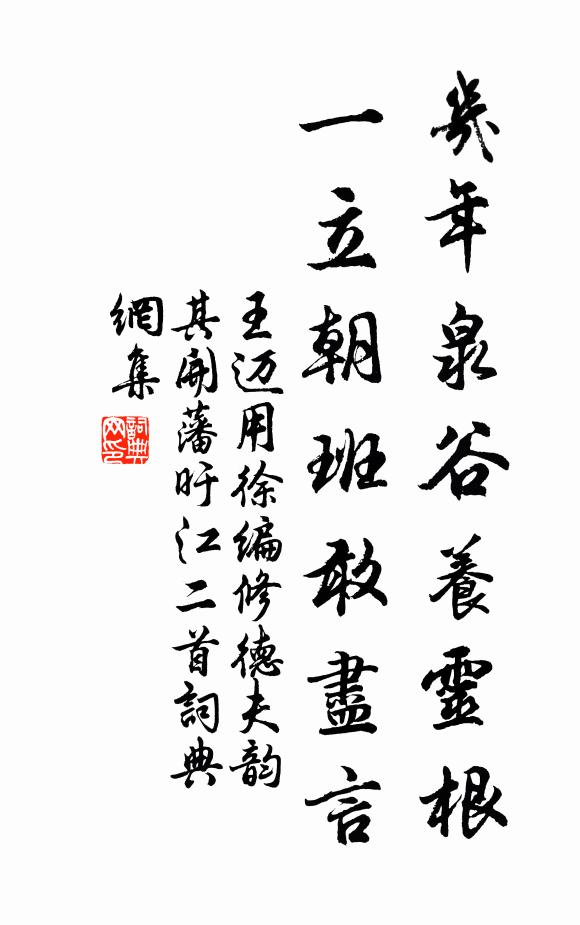 幾年泉谷養靈根
一立朝班敢盡言
王迈用徐编修德夫韵
其開藩盱江二首詞典
網集
詞典
网印